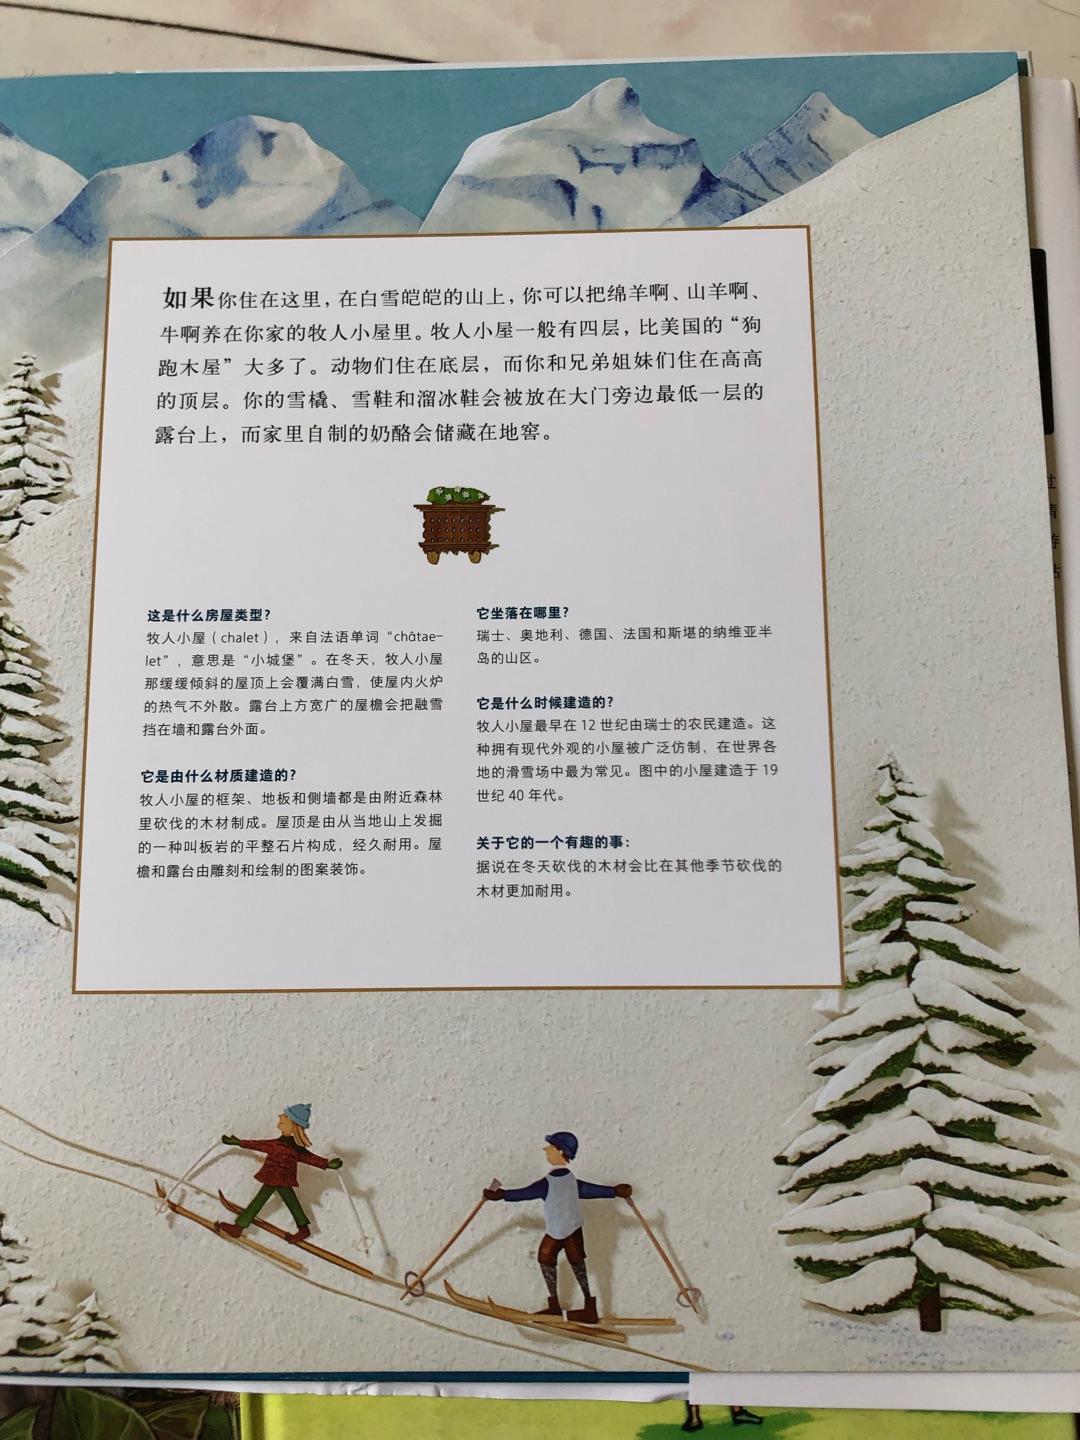 如果你住在这里，在白雪皑皑的山上，你可以把绵羊啊、山羊啊、
牛啊养在你家的牧人小屋里。牧人小屋一般有四层，比美国的“狗
跑木屋”大多了。动物们住在底层，而你和兄弟姐妹们住在高高
的顶层。你的雪橇、雪鞋和溜冰鞋会被放在大门旁边最低一层的
露台上，而家里自制的奶酪会储藏在地窖。
这是什么房屋类型？
牧人小屋（chalet），来自法语单词“châtae-
let”，意思是“小城堡”。在冬天，牧人小屋
那缓缓倾斜的屋顶上会覆满白雪，使屋内火炉
的热气不外散。露台上方宽广的屋檐会把融雪
挡在墙和露台外面。
它是由什么材质建造的？
牧人小屋的框架、地板和侧墙都是由附近森林
里砍伐的木材制成。屋顶是由从当地山上发掘
的一种叫板岩的平整石片构成，经久耐用。屋
檐和露台由雕刻和绘制的图案装饰。
它坐落在哪里？
瑞士、奥地利、德国、法国和斯堪的纳维亚半
岛的山区。
它是什么时候建造的？
牧人小屋最早在 12 世纪由瑞士的农民建造。这
种拥有现代外观的小屋被广泛仿制，在世界各
地的滑雪场中最为常见。图中的小屋建造于 19
世纪 40 年代。
关于它的一个有趣的事：
据说在冬天砍伐的木材会比在其他季节砍伐的
木材更加耐用。